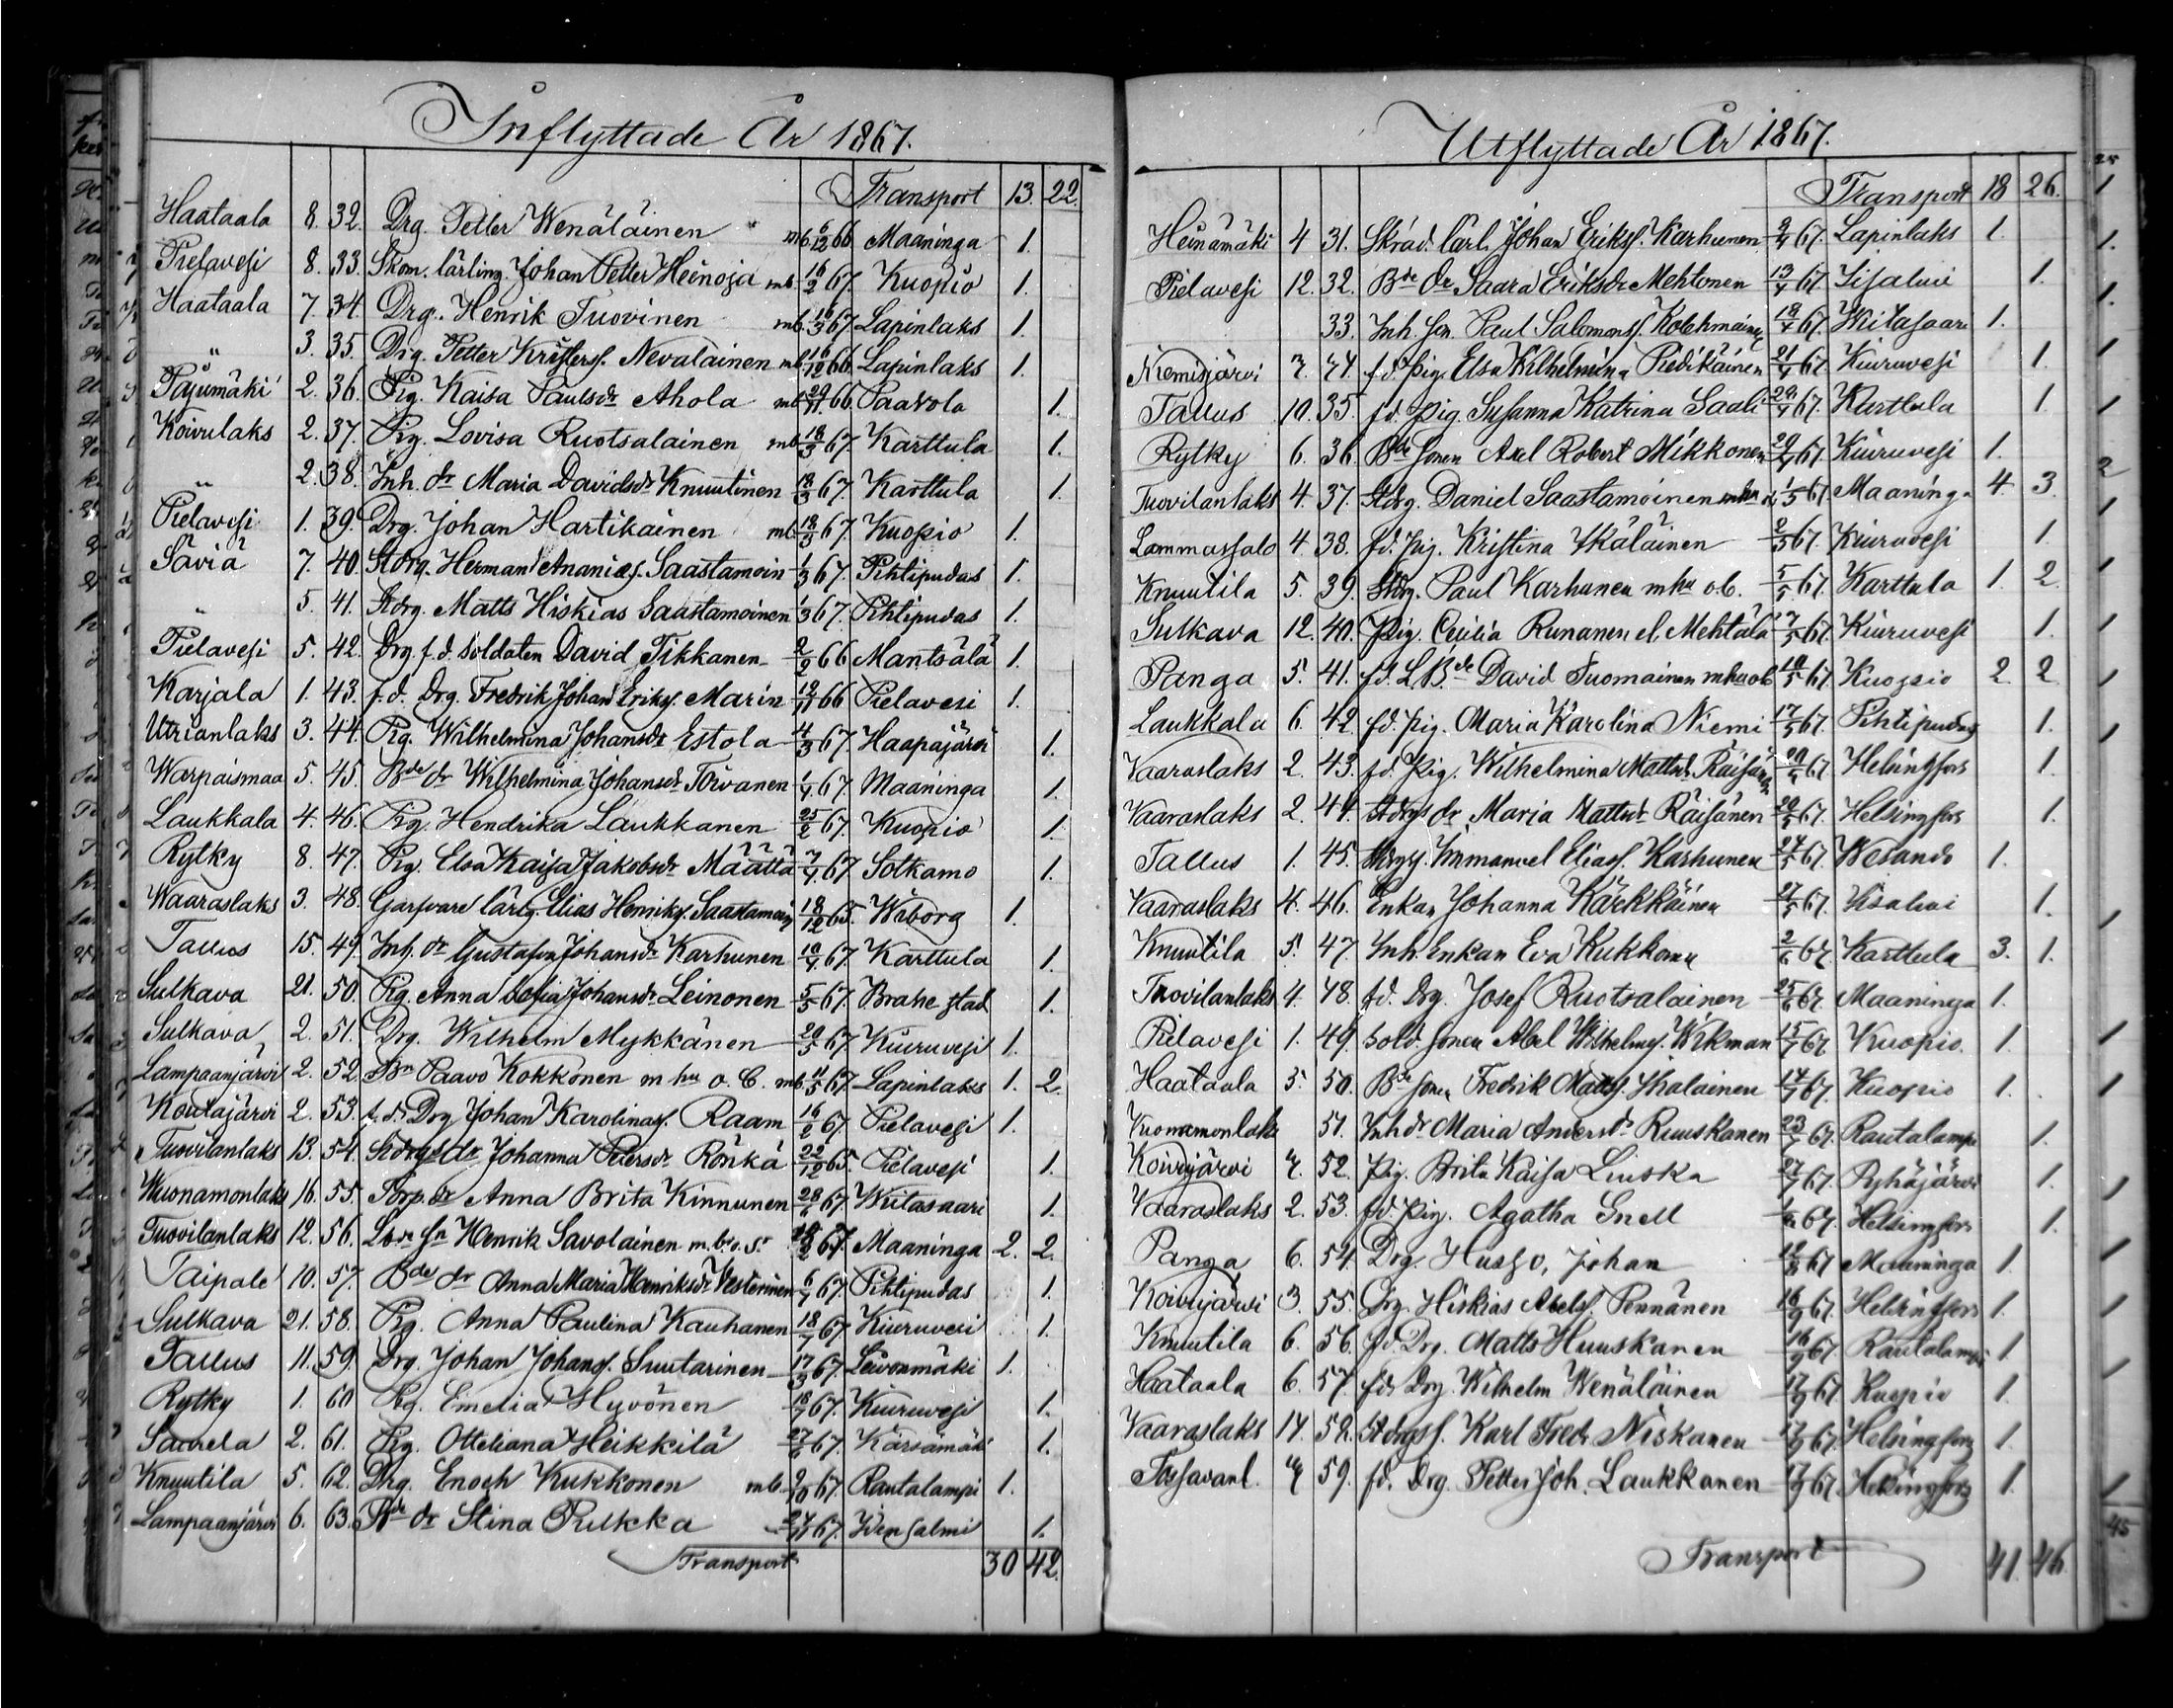 Inflyttade År 1867.
Transport 13. 22.
Haataala 8. 32. Drg. Petter Wenäläinen mb. 6/12 66 Maaninga 1.
Pielavesi 8. 33. Skom. lärling. Johan Petter Heinoja mb. 16/2 67. Kuopio 1.
Haataala 7. 34. Drg. Henrik Tuovinen mb. 16/3 67. Lapinlaks 1.
" 3. 35. Drg. Petter Kristerss. Nevalainen mb. 16/12 66 Lapinlaks 1.
Pajumäki 2. 36. Pig. Kaisa Paulsdr Ahola mb. 29/11 66. Paavola 1.
Koivulaks 2. 37. Pig. Lovisa Ruotsalainen mb. 18/3 67. Karttula 1.
" 2. 38. Inh. dr Maria Davidsdr Knuutinen 18/3 67. Karttula 1.
Pielavesi 1. 39. Drg. Johan Hartikainen mb. 18/3 67. Kuopio 1.
Säviä 7. 40. Stdrg. Herman Ananias. Saastamoin 1/3 67. Pihtipudas 1.
" 5. 41. Stdrg. Matts Hiskias Saastamoinen 1/3 67. Pihtipudas 1.
Pielavesi 5. 42. Drg. f.d. soldaten David Tikkanen 2/2 66 Mantsälä 1.
Karjala 1. 43. f.d. Drg. Fredrik Johan Eriks. Marin 12/11 66 Pielavesi 1.
Utrianlaks 3. 44. Pig. Wilhelmina Johansdr Estola 4/3 67. Haapajärvi 1.
Warpaismaa 5. 45. Bde dr Wilhelmina Johansdr Toivanen 1/4 67. Maaninga 1.
Laukkala 4. 46. Pig. Hendrika Laukkanen 25/2 67. Kuopio 1.
Rytky 8. 47. Pig. Elsa Kaisa Jakobsdr Määttä 7/4 67 Sotkamo 1.
Waaraslaks 3. 48. Garfvare lärlg. Elias Henriks. Saastamoin 18/12 65. Wiborg 1.
Tallus 15. 49. Inh. dr Gustafva Johansdr Karhunen 10/4 67. Karttula 1.
Sulkava 21. 50. Pig. Anna Sofia Johansdr. Leinonen 5/5 67. Brahe stad 1.
Sulkava 2. 51. Drg. Wilhelm Mykkänen 20/5 67. Kiuruvesi 1.
Lampaanjärvi 2. 52. Bn Paavo Kokkonen m hu o. C. mb. 11/5 67. Lapinlaks 1. 2.
Koutajärvi 2. 53. f.d. Drg Johan Karolinas. Raam 16/2 67. Pielavesi 1.
Tuovilanlaks 13. 54. Stdrgs dr Johanna Petersdr Rönkä 22/12 65. Pielavesi 1.
Wuonamonlaks 16. 55. Torp. dr Anna Brita Kinnunen 28/6 67. Wiitasaari 1.
Tuovilanlaks 12. 56. Lbde sn Henrik Savolainen m.b. o. s. 67. Maaninga 2. 2.
Taipale 10. 57. Bde dr Anna Maria Henriksdr Vesterinen 6/7 67. Pihtipudas 1.
Sulkava 21. 58. Pig. Anna Paulina Kauhanen 18/7 67. Kiuruvesi 1.
Tallus 11. 59. Drg. Johan Johans. Suutarinen 17/3 67. Leivonmäki 1.
Rytky 1. 60 Pig. Emelia Hyvönen 18/7 67. Kiuruvesi 1.
Saarela 2. 61. Pig. Otteliana Heikkilä 27/6 67. Kärsämäki 1.
Knuutila 5. 62. Drg. Enoch Kukkonen mb. 9/10 67 Rautalampi 1.
Lampaanjärvi 6. 63. Bde dr Stina Pulkka 24/11 67. Idensalmi 1.
Transport 30 42.
Utflyttade År 1867.
Transport 18 26.
Heinämäki 4 31. Skräd. lärl. Johan Erikss. Karhunen 9/4 67. Lapinlaks 1.
Pielavesi 12. 32. Bde dr Saara Eriksdr Mehtonen 13/4 67. Iisalmi 1.
33. Inh. son. Paul Salomonss. Kolehmainen 18/4 67. Wiitasaari 1.
Niemisjärvi 34. fd. pig. Elsa Wilhelmina Piedikäinen 21/4 67. Kiuruvesi 1.
Tallus 10. 35. fd. pig. Susanna Katrina Saali 29/4 67. Karttula 1.
Rytky 6. 36. Bde sonen Axel Robert Mikkonen 29/4 67. Kiuruvesi 1.
Tuovilanlaks 4. 37. Stdrg. Daniel Saastamoinen mhu ob 1/5 67. Maaninga 4. 3.
Lammassalo 4. 38. fd. pig. Kristina Ikäläinen 2/5 67. Kiuruvesi 1.
Knuutila 5. 39. Stdrg. Paul Karhunen mhu o.b. 5/5 67. Karttula 1. 2.
Sulkava 12. 40. Pig. Cecilia Runanen el. Mehtälä 7/5 67. Kiuruvesi 1.
Panga 5. 41. fd. L.Bde David Tuomainen mhu ob 10/5 67. Kuopio 2. 2
Laukkala 6. 42 fd. pig. Maria Karolina Niemi 17/5 67. Pihtipudas 1.
Vaaraslaks 2. 43. fd. pig. Wilhelmina Mattsdr Räisänen 67. Helsingfors 1.
Vaaraslaks 2. 44. Stdrgs dr. Maria Mattsdr Räisänen 20/5 67. Helsingfors 1.
Tallus 1. 45. Immanuel Eliass. Karhunen 24/5 67. Wesando 1.
Vaaraslaks 4. 46. Enkan Johanna Kärkkäinen 27/5 67. Iisalmi 1.
Knuutila 5. 47. Inh. Enkan Eva Kukkonen 2/6 67. Karttula 3. 1.
Tuovilanlaks 4. 48. fd. Drg. Josef Ruotsalainen 25/6 67. Maaninga 1.
Pielavesi 1. 49. Sold. sonen Abel Wilhelms. Wikman 15/7 67. Kuopio. 1.
Haataala 5. 50. Bde sonen Fredrik Matts. Ikäläinen 17/7 67. Kuopio 1.
Vuonamonlaks 51. Inh dr Maria Andersdr Ruuskanen 23/7 67. Rautalampi 1.
Koivujärvi 52. Pig. Brita Kaisa Liuska 27/7 67. Pyhäjärvi 1.
Vaaraslaks 2. 53. fd. pig. Agatha Snell 67. Helsingfors 1.
Panga 6. 54. Drg. Husso, Johan 12/8 67 Maaninga 1.
Koivujärvi 3. 55. Drg. Hiskias Abels. Pennanen 16/9 67. Helsingfors 1.
Knuutila 6. 56. fd. Drg. Matts Huuskanen 16/9 67. Rautalampi 1.
Haataala 6. 57. fd. Drg. Wilhelm Wenäläinen 17/9 67. Kuopio 1.
Vaaraslaks 14. 58. Stdrgs s. Karl Fredr Niskanen 17/9 67. Helsingfors 1.
Tossavanl. 59. fd. Drg. Petter Joh. Laukkanen 17/9 67. Helsingfors 1.
Transport 41. 46.